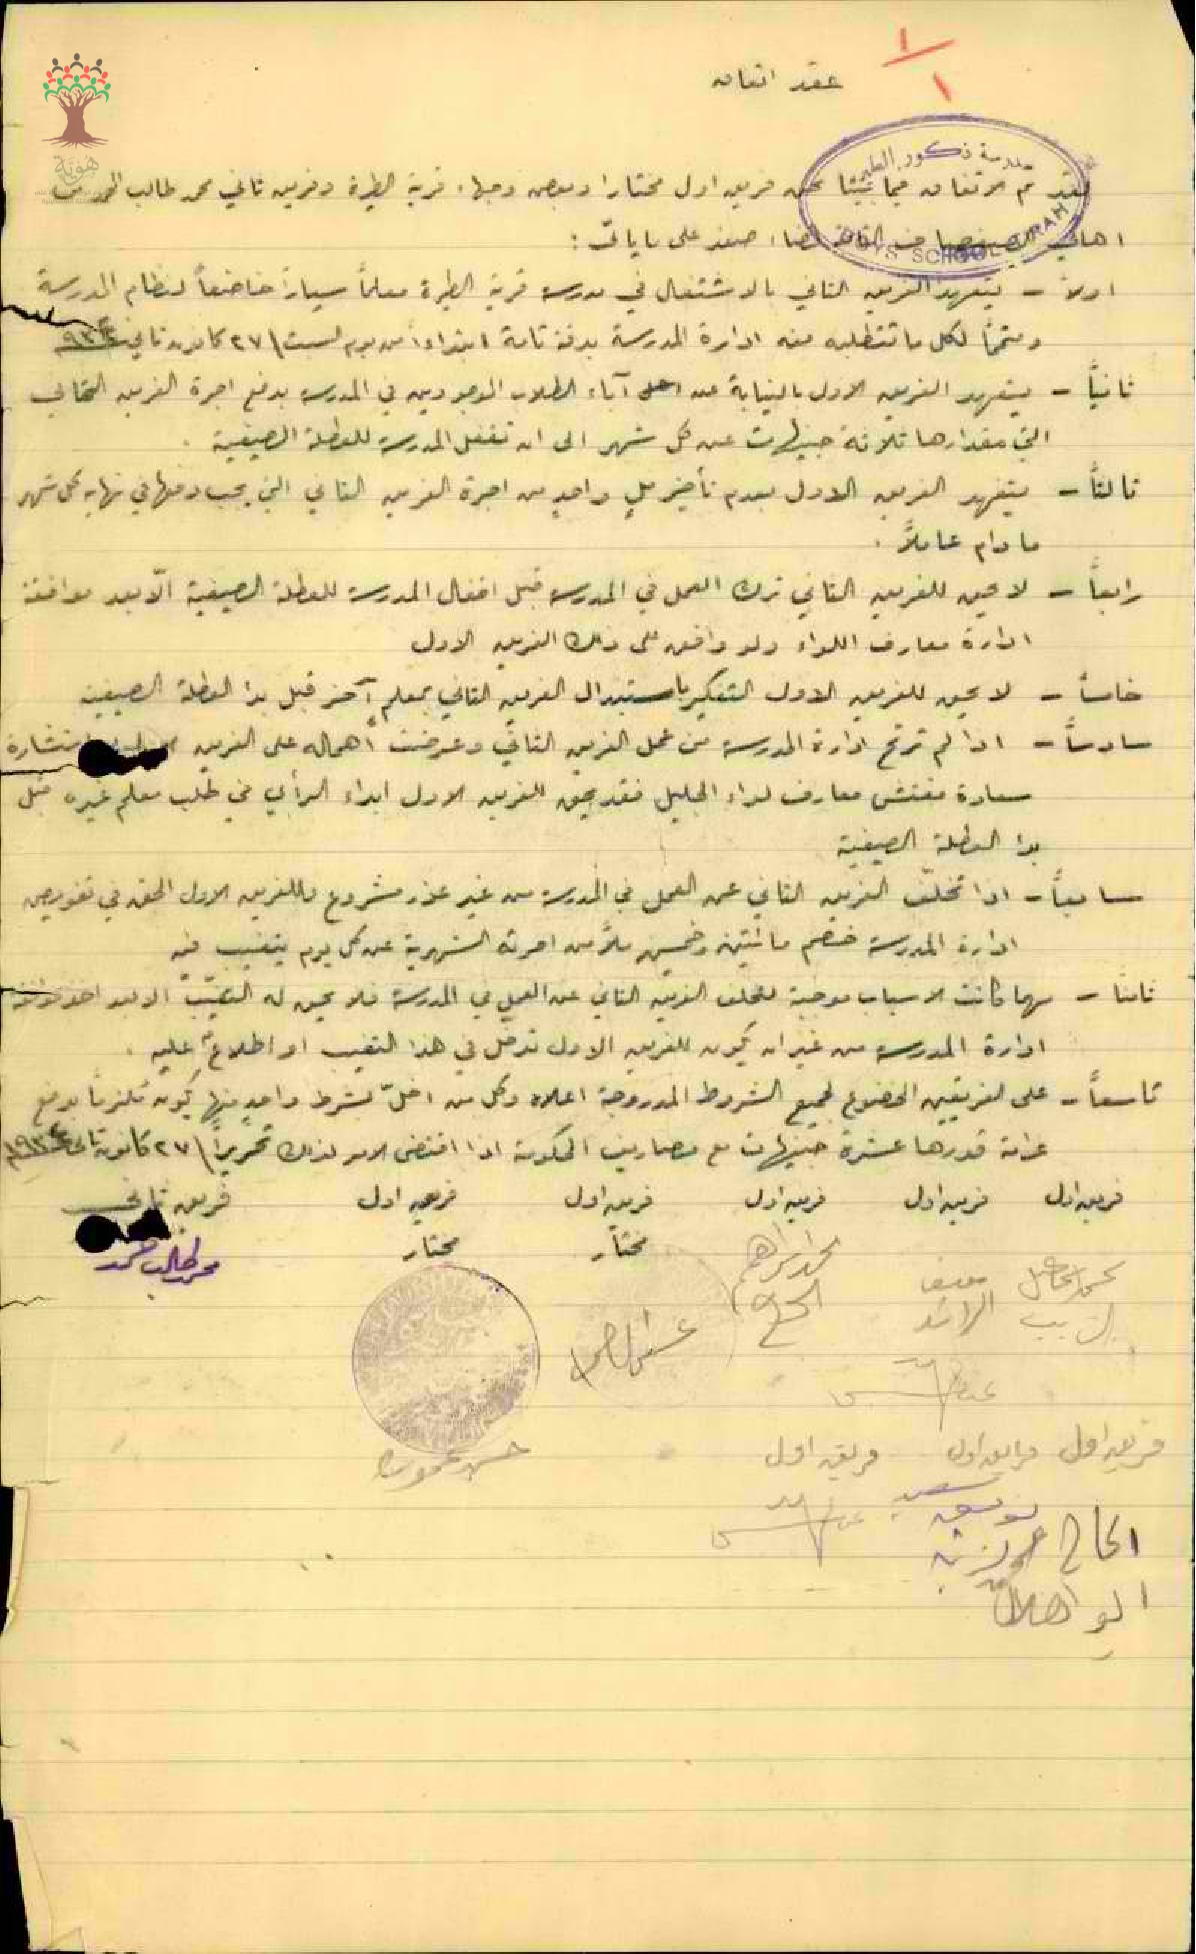 ١
١
عقد اتفاق
هوية
مدرسة ذكور الطيرة
BOYS SCHOOL TIRAH
لقد تم الاتفاق فيما بيننا نحن فريق اول مختارا وبعض وجهاء قرية الطيرة وفريق ثاني محمد طالب الحمد من
اهالي قضاء صفد على ما يأتي :
اولاً - يتعهد الفريق الثاني بالاشتغال في مدرسة قرية الطيرة معلماً سياراً خاضعاً لنظام المدرسة
ومتمماً لكل ما تتطلبه منه ادارة المدرسة بدقة تامة ابتداءاً من يوم السبت ٢٧ كانون ثاني
ثانياً - يتعهد الفريق الاول بالنيابة عن آباء الطلاب الموجودين في المدرسة بدفع اجرة الفريق الثاني
التي مقدارها ثلاثة جنيهات عن كل شهر الى ان تقفل المدرسة للعطلة الصيفية .
ثالثاً - يتعهد الفريق الاول بعدم تأخير مل واحد من اجرة الفريق الثاني التي يجب دفعها في نهاية كل شهر
ما دام عاملاً .
رابعاً - لا يحق للفريق الثاني ترك العمل في المدرسة قبل اقفال المدرسة للعطلة الصيفية الّا بعد موافقة
ادارة معارف اللواء ولو وافق على ذلك الفريق الاول
خامساً - لا يحق للفريق الاول التفكير باستبدال الفريق الثاني بمعلم آخر قبل بدا العطلة الصيفية
سادساً - اذا لم ترتح ادارة المدرسة من عمل الفريق الثاني وعرضت اهماله على الفريق استشارة
سعادة مفتش معارف لواء الجليل فقد يحق للفريق الاول ابداء الرأي في طلب معلم غيره قبل
بدا العطلة الصيفية
سابعاً - اذا تخلّف الفريق الثاني عن العمل في المدرسة من غير عذر مشروع فللفريق الاول الحق في تفويض
ادارة المدرسة خصم مائتين وخمسين ملاً من اجرته الشهرية عن كل يوم يتغيب فيه
ثامناً - مهما كانت الاسباب موجبة لتخلف الفريق الثاني عن العمل في المدرسة فلا يحق له التغيّب الا بعد اخذ موافقة
ادارة المدرسة من غير ان يكون للفريق الاول تدخل في هذا التغيب او اطلاع عليه .
تاسعاً - على الفريقين الخضوع لجميع الشروط المدروجة اعلاه وكل من اخلّ بشرط واحد منها يكون ملزماً بدفع
غرامة قدرها عشرة جنيهات مع مصاريف الحكومة اذا اقتضى الامر لذلك تحريراً ٢٧ كانون ثاني
فريق اول فريق اول فريق اول فريق اول فريق اول فريق ثاني
مختار مختار
محمد طالب حمد
محمد ابراهيم
الحاج
فريق اول فريق اول فريق اول
الحاج